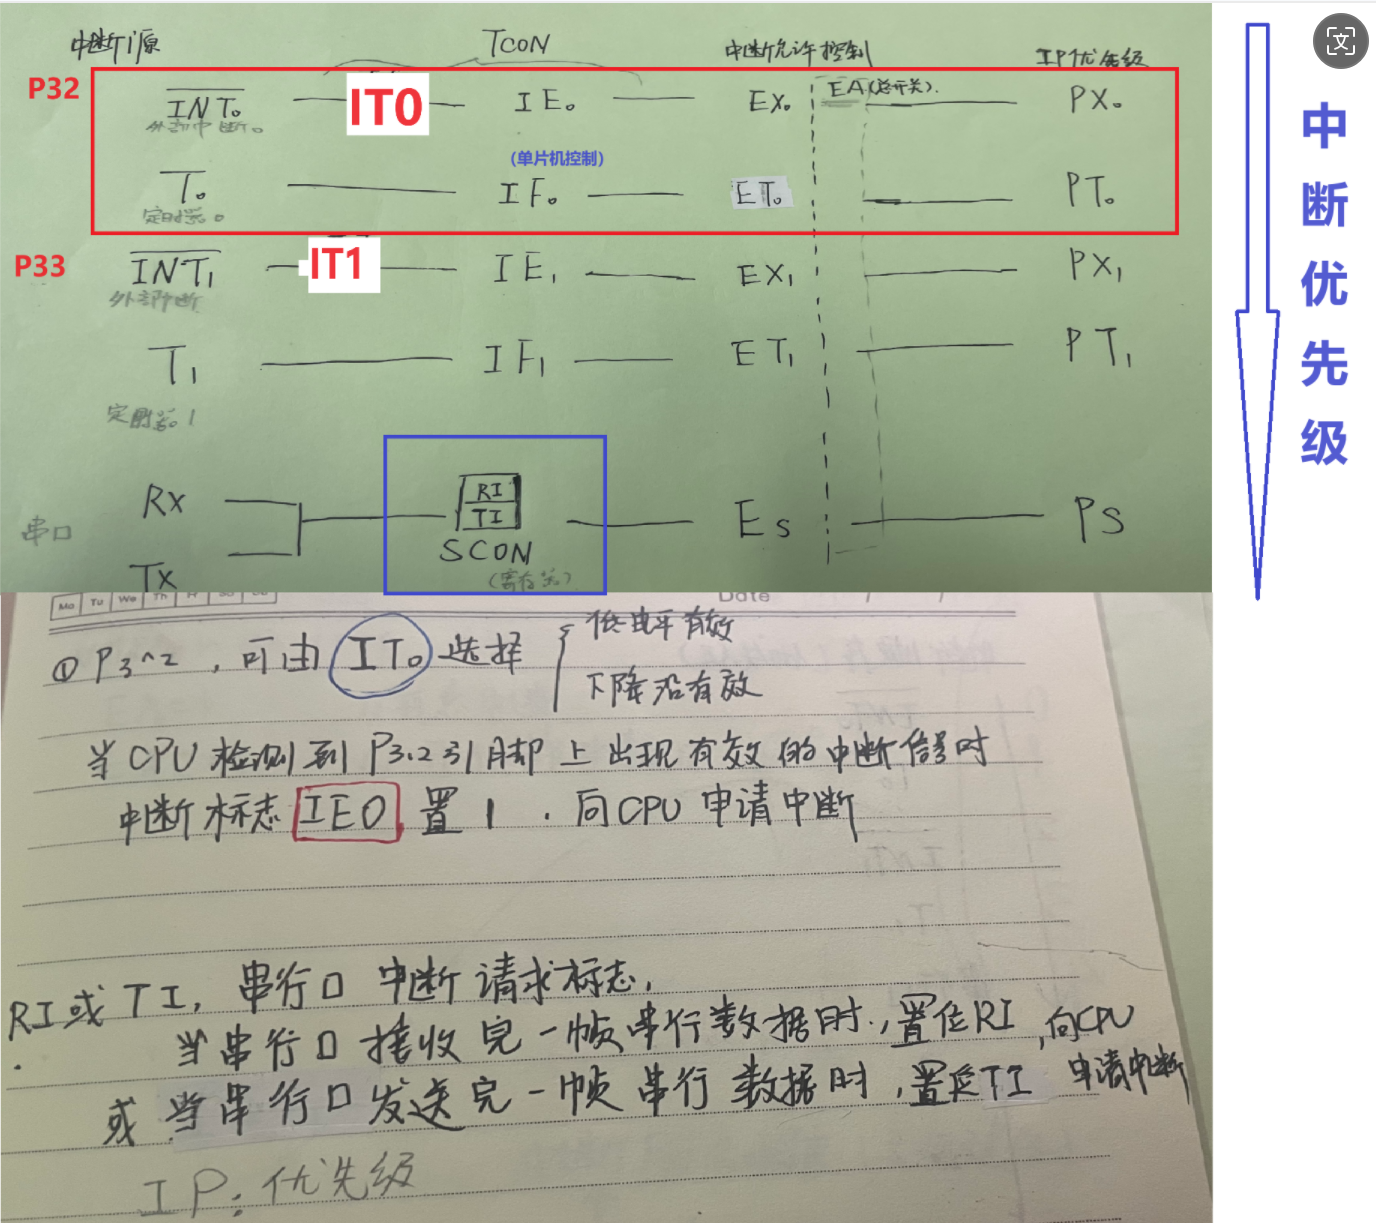 中断源 TCON 中断允许控制 IP优先级
P32 INT₀ IT0 IE₀ EX₀ EA(总开关). PX₀
外部中断0
(单片机控制)
T₀ IF₀ ET₀ PT₀
定时器0
P33 INT₁ IT1 IE₁ EX₁ PX₁
外部中断
T₁ IF₁ ET₁ PT₁
定时器1
Rx RI
串口 TI Es PS
Tx SCON
(寄存器)
中断优先级
Mo Tu We Th Fr Sa Su Date / /
① P3^2，可由 IT₀ 选择 低电平有效
下降沿有效
当CPU检测到P3.2引脚上出现有效的中断信号时
中断标志 IE0 置1．向CPU申请中断
RI或TI，串行口中断请求标志，
当串行口接收完一帧串行数据时，置位RI，向CPU
申请中断
或当串行口发送完一帧串行数据时，置位TI
IP：优先级